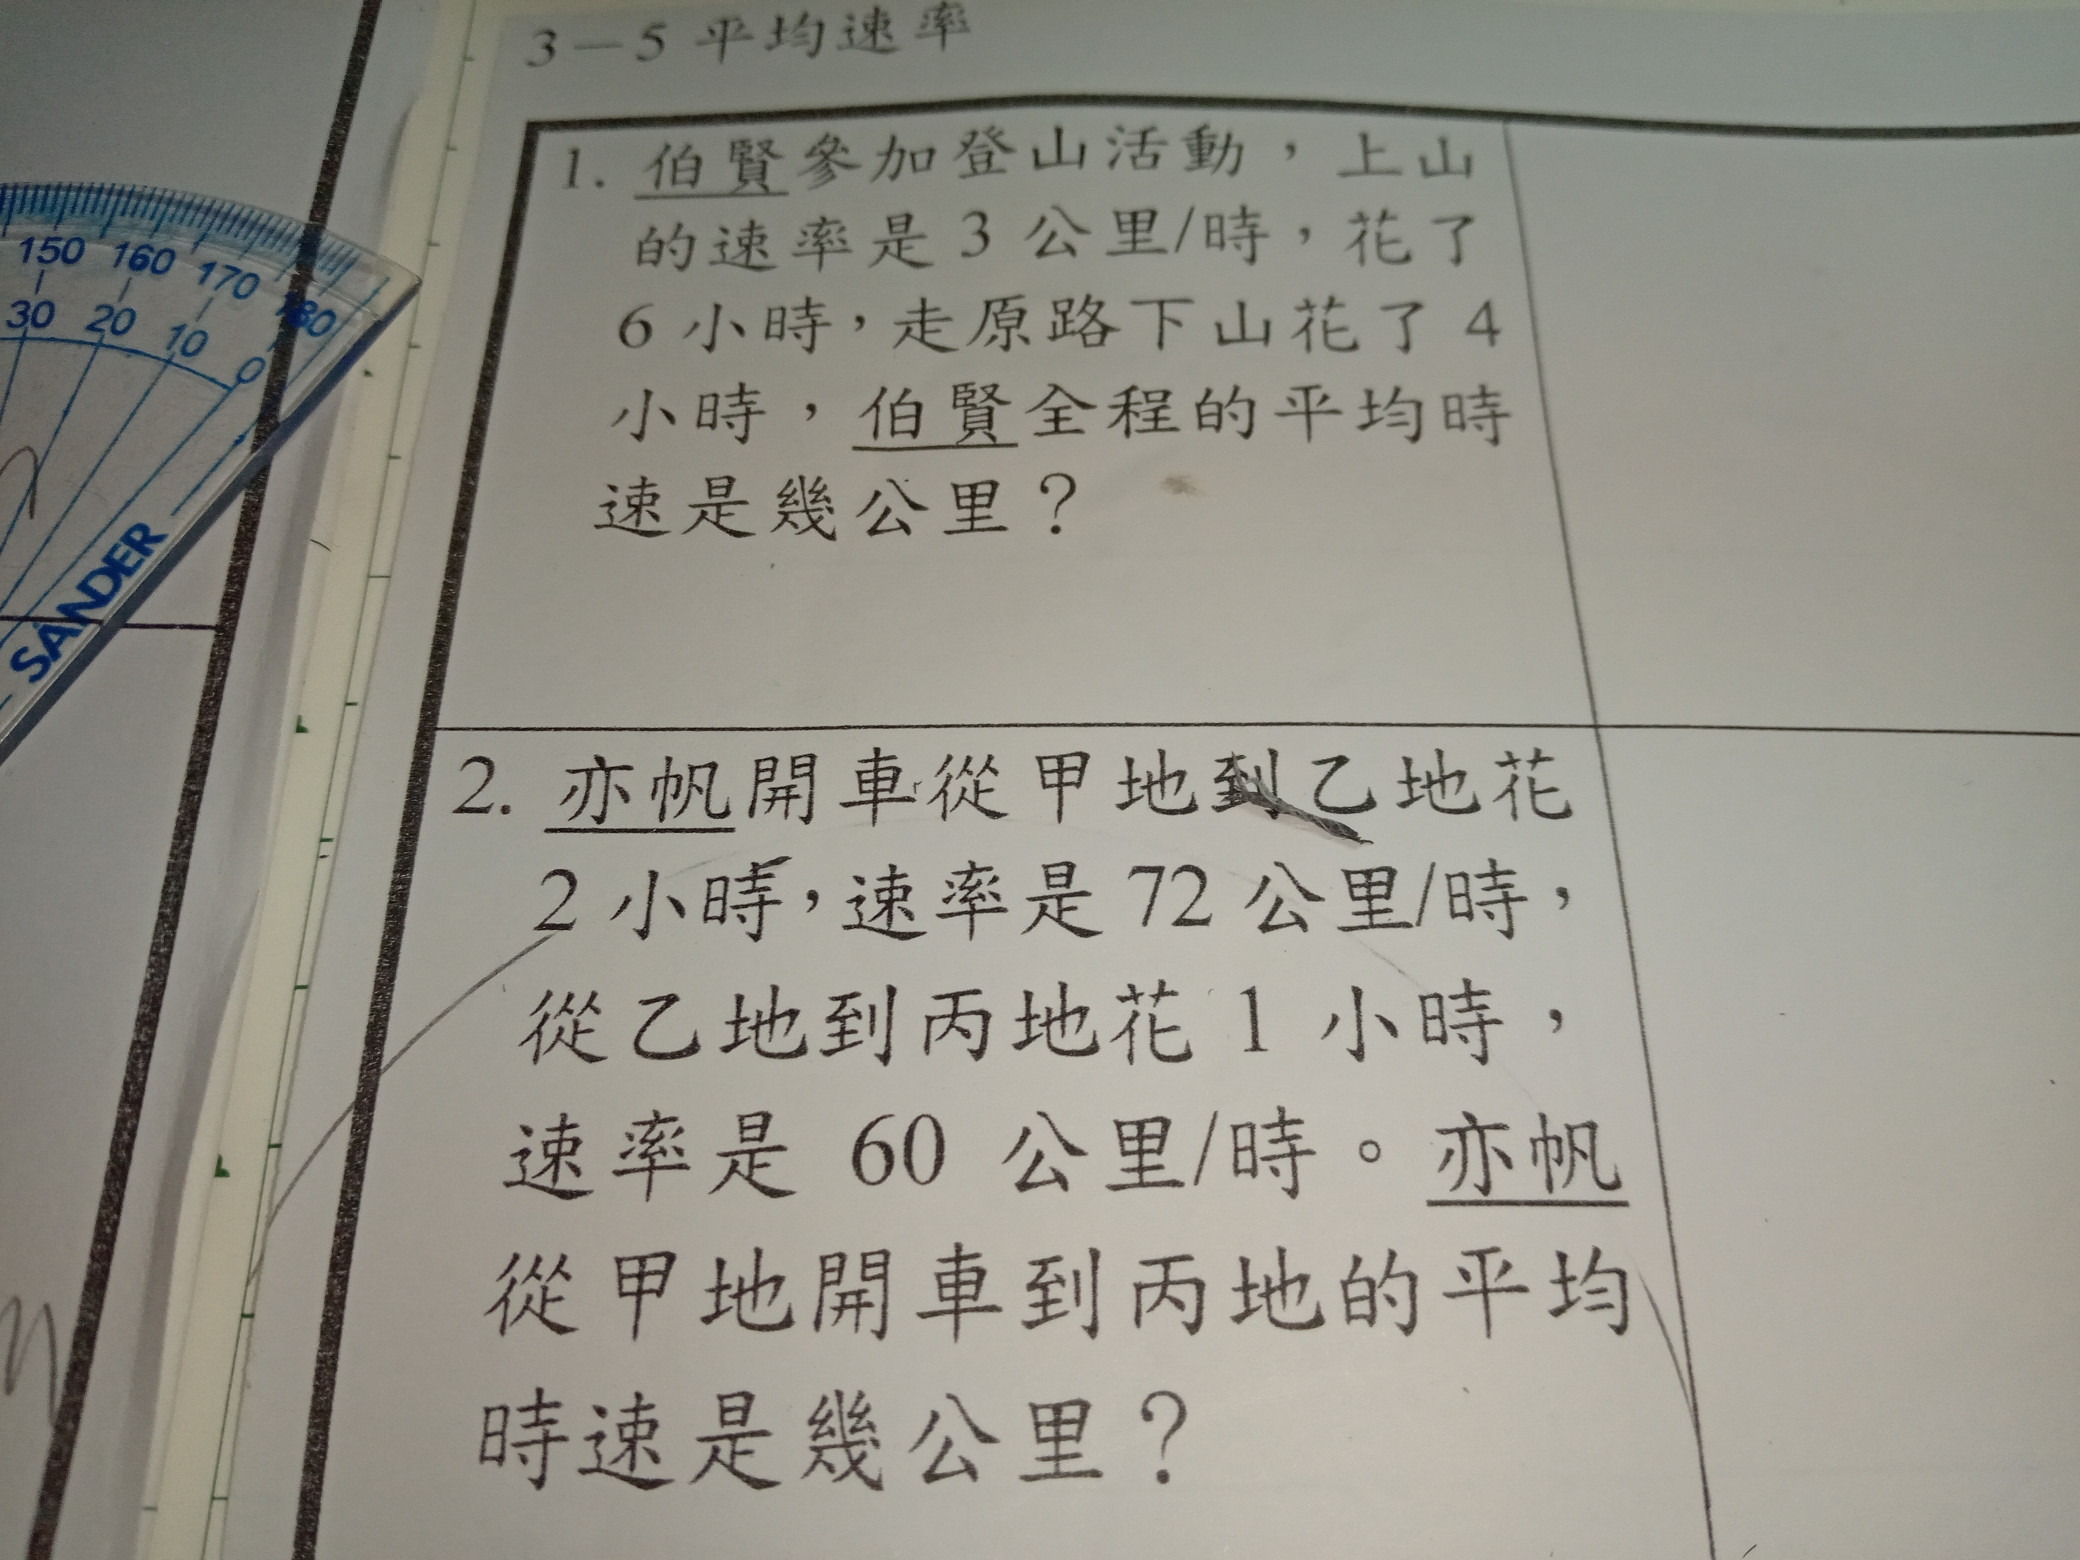 3－5 平均速率
1. 伯賢參加登山活動，上山
的速率是 3 公里/時，花了
6 小時，走原路下山花了 4
小時，伯賢全程的平均時
速是幾公里？
2. 亦帆開車從甲地到乙地花
2 小時，速率是 72 公里/時，
從乙地到丙地花 1 小時，
速率是 60 公里/時。亦帆
從甲地開車到丙地的平均
時速是幾公里？
150 160 170 180
30 20 10 0
SANDER